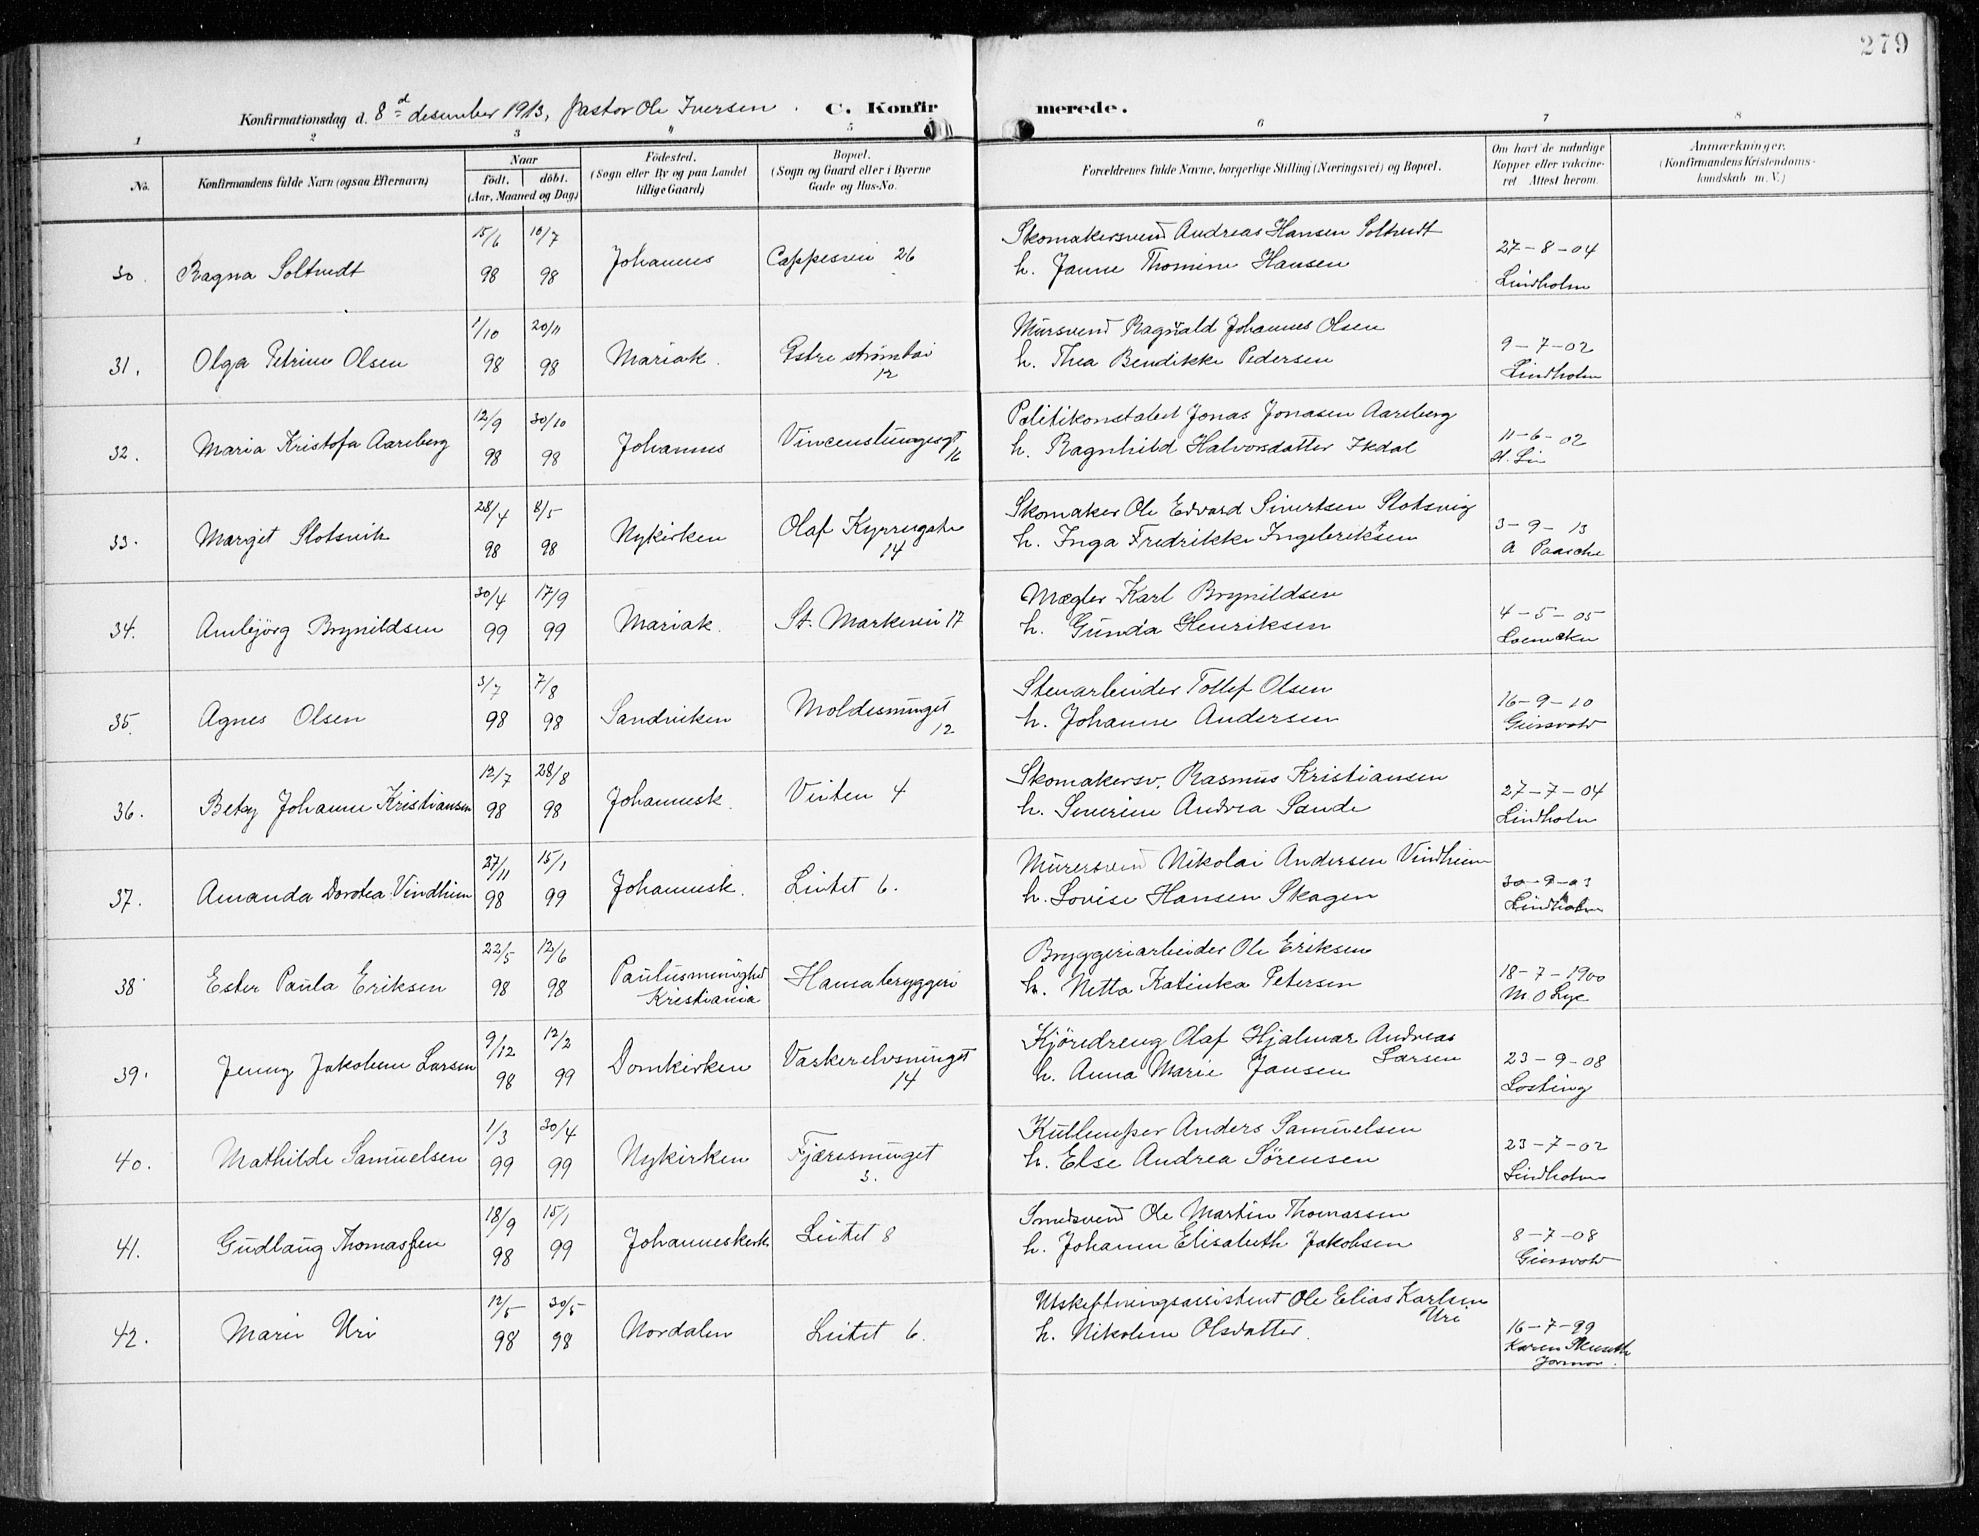 279
Konfirmationsdag d. 8d desember 1913, Pastor Ole Iversen. C. Konfirmerede.
1 2 3 " 5 6 7 8
No. Konfirmandens fulde Navn (ogsaa Efternavn) Naar Födt. döbt. (Aar, Maaned og Dag) Födested. (Sogn eller By og paa Landet tillige Gaard) Bopæl. (Sogn og Gaard eller i Byerne Gade og Hus-No. Forældrenes fulde Navne, borgerlige Stilling (Næringsvei) og Bopæl. Om havt de naturlige Kopper eller vakcineret Attest herom. Anmærkninger. (Konfirmandens Kristendomskundskab m. V.)
30. Ragna Soltvedt 15/6 98 10/7 98 Johannes Cappesvei 26 Skomakersvend Andreas Hansen Soltvedt 27-8-04
h. Janne Thomine Hansen Lindholm
31. Olga Petrine Olsen 1/10 98 20/11 98 Mariak. Østre strømkai 12 Mursvend Ragnvald Johannes Olsen 9-7-02
h. Thea Bendikke Pedersen Lindholm
32. Maria Kristofa Aareberg 12/9 98 30/10 98 Johannes Vincenslungesgt 16 Politikonstabel Jonas Jonasen Aareberg 11-6-02
h. Ragnhild Halvorsdatter Ekdal
33. Margit Slotsvik 28/4 98 8/5 98 Nykirken Olaf Kyrresgate 14 Skomaker Ole Edvard Sivertsen Slotsvig 3-9-13
h. Inga Fredrikke Ingebriktsen A Paasche
34. Ambjörg Brynildsen 30/4 99 17/9 99 Mariak. St. Markevei 17 Mægler Karl Brynildsen 4-5-05
h. Gunda Henriksen
35. Agnes Olsen 3/7 98 7/8 98 Sandviken Moldesmuget 12 Stenarbeider Tollef Olsen 16-9-10
h. Johanne Andersen Giersvold
36. Betzy Johanne Kristiansen 12/7 98 28/8 98 Johannesk. Viiten 4 Skomakersv. Rasmus Kristiansen 27-7-04
h. Severine Andrea Sande Lindholm
37. Amanda Dorotea Vindheim 27/11 98 15/1 99 Johannesk. Leitet 6. Murersvend Nikolai Andersen Vindheim 30-9-03
h. Lovise Hansen Skagen Lindholm
38 Ester Paula Eriksen 22/5 98 12/6 98 Paulusmenighed Kristiania Hansabryggeri Bryggeriarbeider Ole Eriksen 18-7-1900
h. Netta Katinka Petersen M. O Lye
39. Jenny Jakobine Larsen 9/12 98 12/2 99 Domkirken Vaskerelvsmuget 14 Kjøredreng Olaf Hjalmar Andreas Larsen 23-9-08
h. Anna Marie Jansen Losting
40. Mathilde Samuelsen 1/3 99 30/4 99 Nykirken Fjæresmuget 3. Kullemper Anders Samuelsen 23-7-02
h. Else Andrea Sørensen Lindholm
41. Gudlaug Thomassen 18/9 98 15/1 99 Johanneskirk Leitet 8 Smedsvend Ole Martin Thomassen 8-7-08
h. Johanne Elisabeth Jakobsen Giersvold
42. Marie Uri 12/5 98 30/5 98 Nordalen Leitet 6. Utskiftningsassistent Ole Elias Karlsen Uri 16-7-99
h. Nikoline Olsdatter. Karen
Jormor.